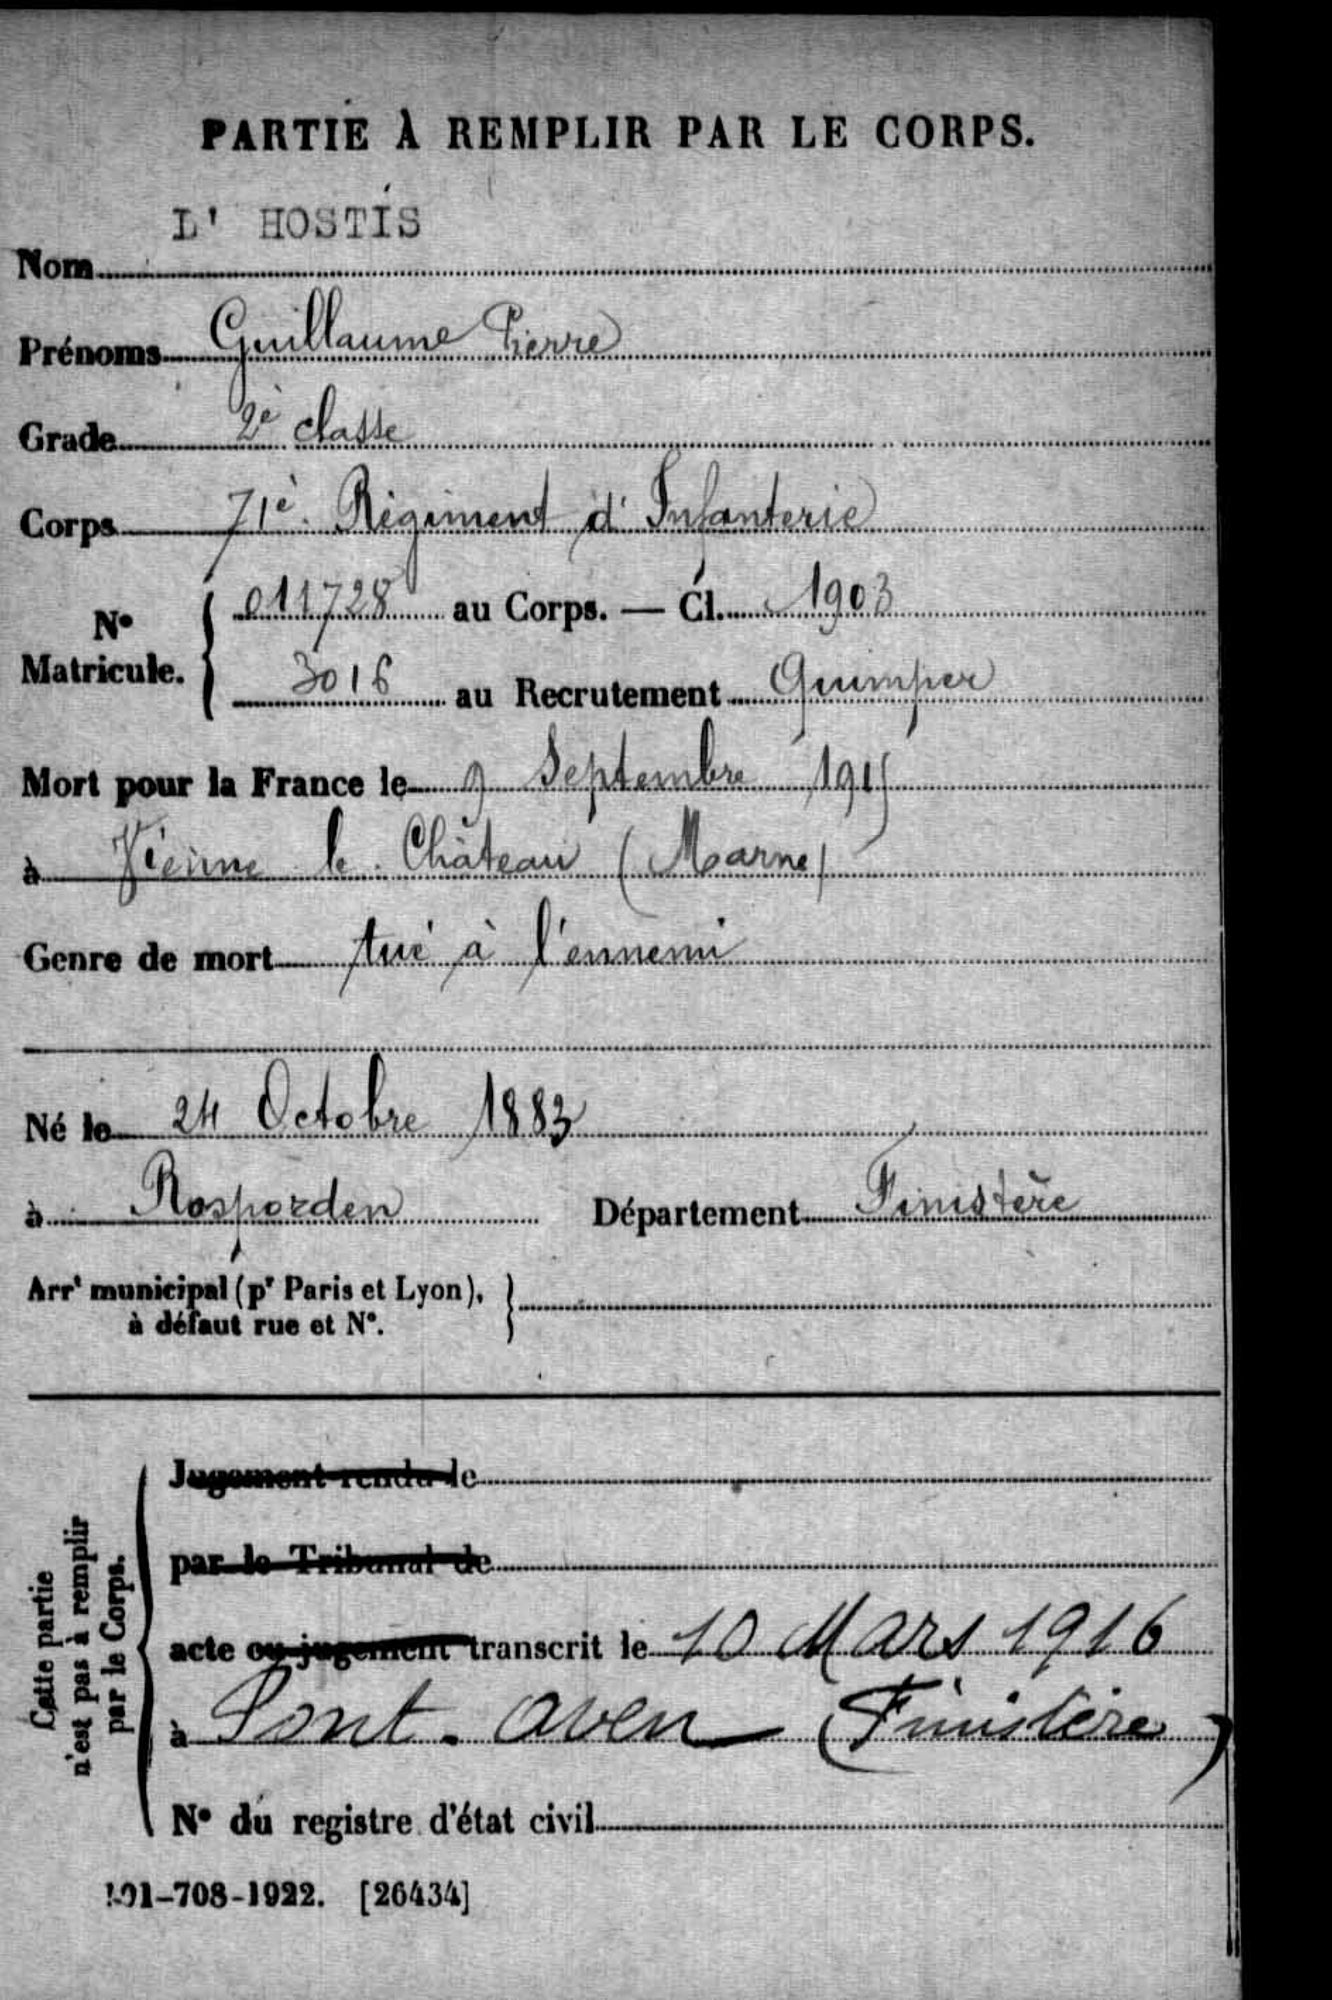 PARTIE À REMPLIR PAR LE CORPS.
L' HOSTIS
Nom
Prénoms Guillaume Pierre
Grade 2è classe
Corps 71è Régiment d'Infanterie
N° Matricule. 011728 au Corps. — Cl. 1903
3016 au Recrutement Quimper
Mort pour la France le 9 Septembre 1915
à Vienne le Château (Marne)
Genre de mort tué à l'ennemi
Né le 24 Octobre 1883
à Rosporden Département Finistère
Arrt municipal (pr Paris et Lyon),
à défaut rue et N°.
Cette partie
n'est pas à remplir
par le Corps.
Jugement rendu le
par le Tribunal de
acte ou jugement transcrit le 10 Mars 1916
à Pont-Aven (Finistère)
N° du registre d'état civil
101-708-1922. [26434]